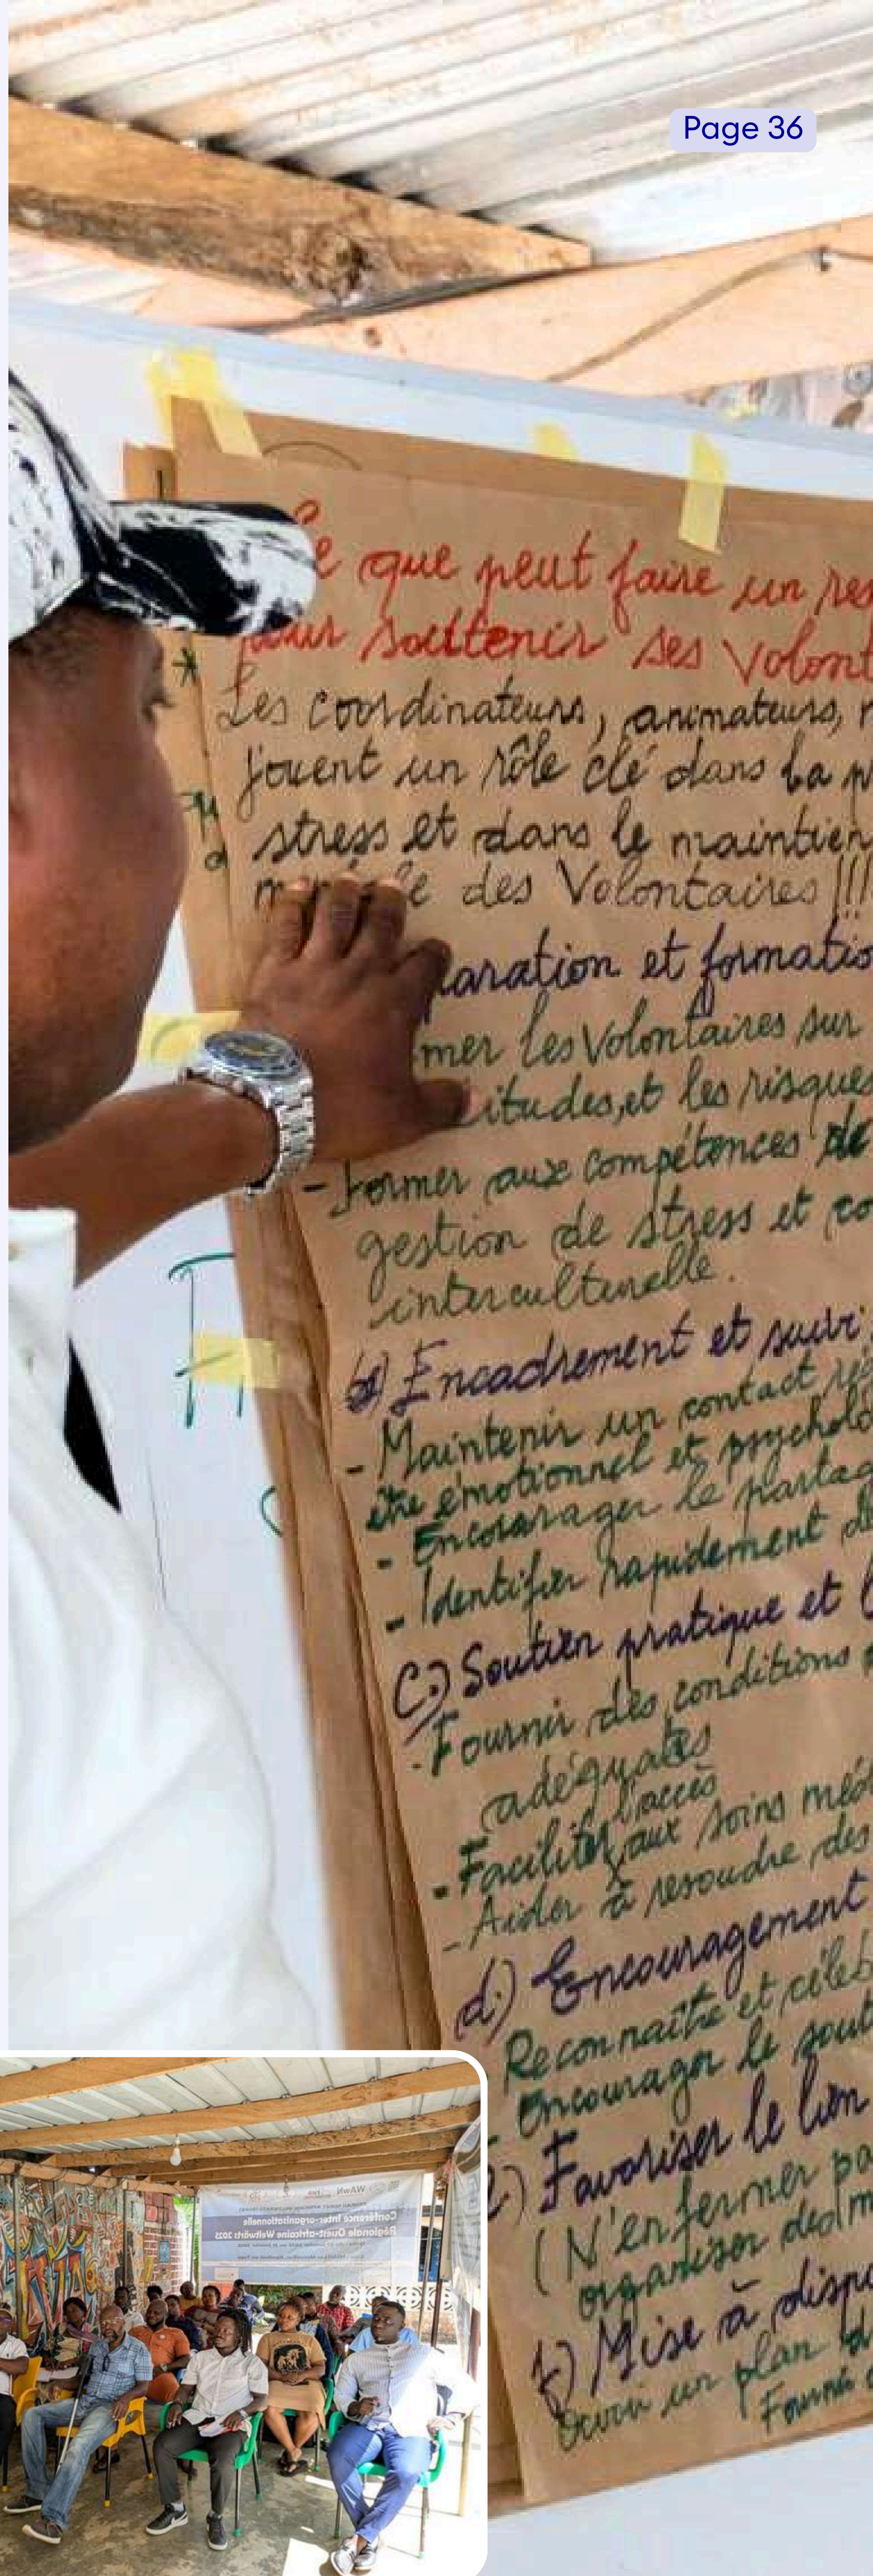 Page 36
Ce que peut faire un res
pour soutenir ses Volont
Les coordinateurs, animateurs, r
jouent un rôle clé dans la p
stress et dans le maintien
des Volontaires !!!
paration et formatio
mer les Volontaires sur
itudes, et les risques
- Former aux compétences de
gestion de stress et co
interculturelle.
b) Encadrement et suivi
- Maintenir un contact rég
être émotionnel et psycholo
- Encourager le partag
- Identifier rapidement d
C) Soutien pratique et l
- Fournir des conditions
adéquates
- Faciliter l'accès aux soins méd
- Aider à resoudre des
d) Encouragement
Reconnaître et céleb
- Encourager le sout
e) Favoriser le lien
(N'enfermer pa
organiser
f) Mise à dispo
un plan d
Fournir
WAwN
Conférence Inter-organisationnelle
Régionale Ouest-africaine Weltwärts 2025